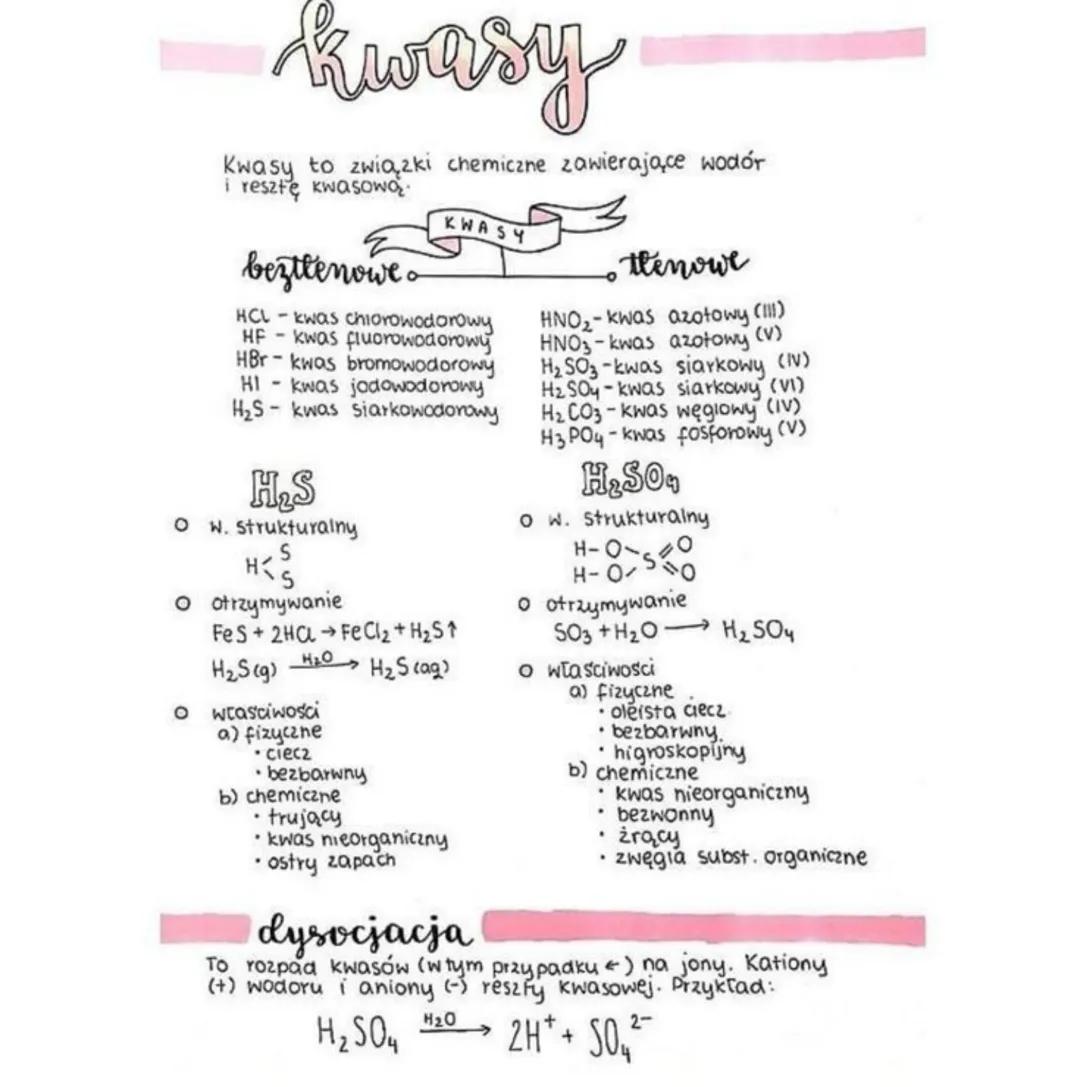 kwasy
Kwasy to związki chemiczne zawierające wodór
i resztę kwasową.
KWASY
beztlenowe
tlenowe
HCl - kwas chlorowodorowy
HF - kwas fluorowodorowy
HBr - kwas bromowodorowy
HI - kwas jodowodorowy
H₂S - kwas siarkowodorowy
HNO₂ - kwas azotowy (III)
HNO₃ - kwas azotowy (V)
H₂SO₃ - kwas siarkowy (IV)
H₂SO₄ - kwas siarkowy (VI)
H₂CO₃ - kwas węglowy (IV)
H₃PO₄ - kwas fosforowy (V)
H₂S
w. strukturalny
H< S
S
otrzymywanie
FeS + 2HCl → FeCl₂ + H₂S↑
H₂S(g) H₂O → H₂S(aq)
właściwości
a) fizyczne
• ciecz
• bezbarwny
b) chemiczne
• trujący
• kwas nieorganiczny
• ostry zapach
H₂SO₄
w. strukturalny
H-O\S=O
H-O/S=O
otrzymywanie
SO₃ + H₂O → H₂SO₄
właściwości
a) fizyczne
• oleista ciecz
• bezbarwny
• higroskopijny
b) chemiczne
• kwas nieorganiczny
• bezwonny
• żrący
• zwęgla subst. organiczne
dysocjacja
To rozpad kwasów (w tym przypadku ←) na jony. Kationy
(+) wodoru i aniony (-) reszty kwasowej. Przykład:
H₂SO₄ H₂O → 2H⁺ + SO₄²⁻